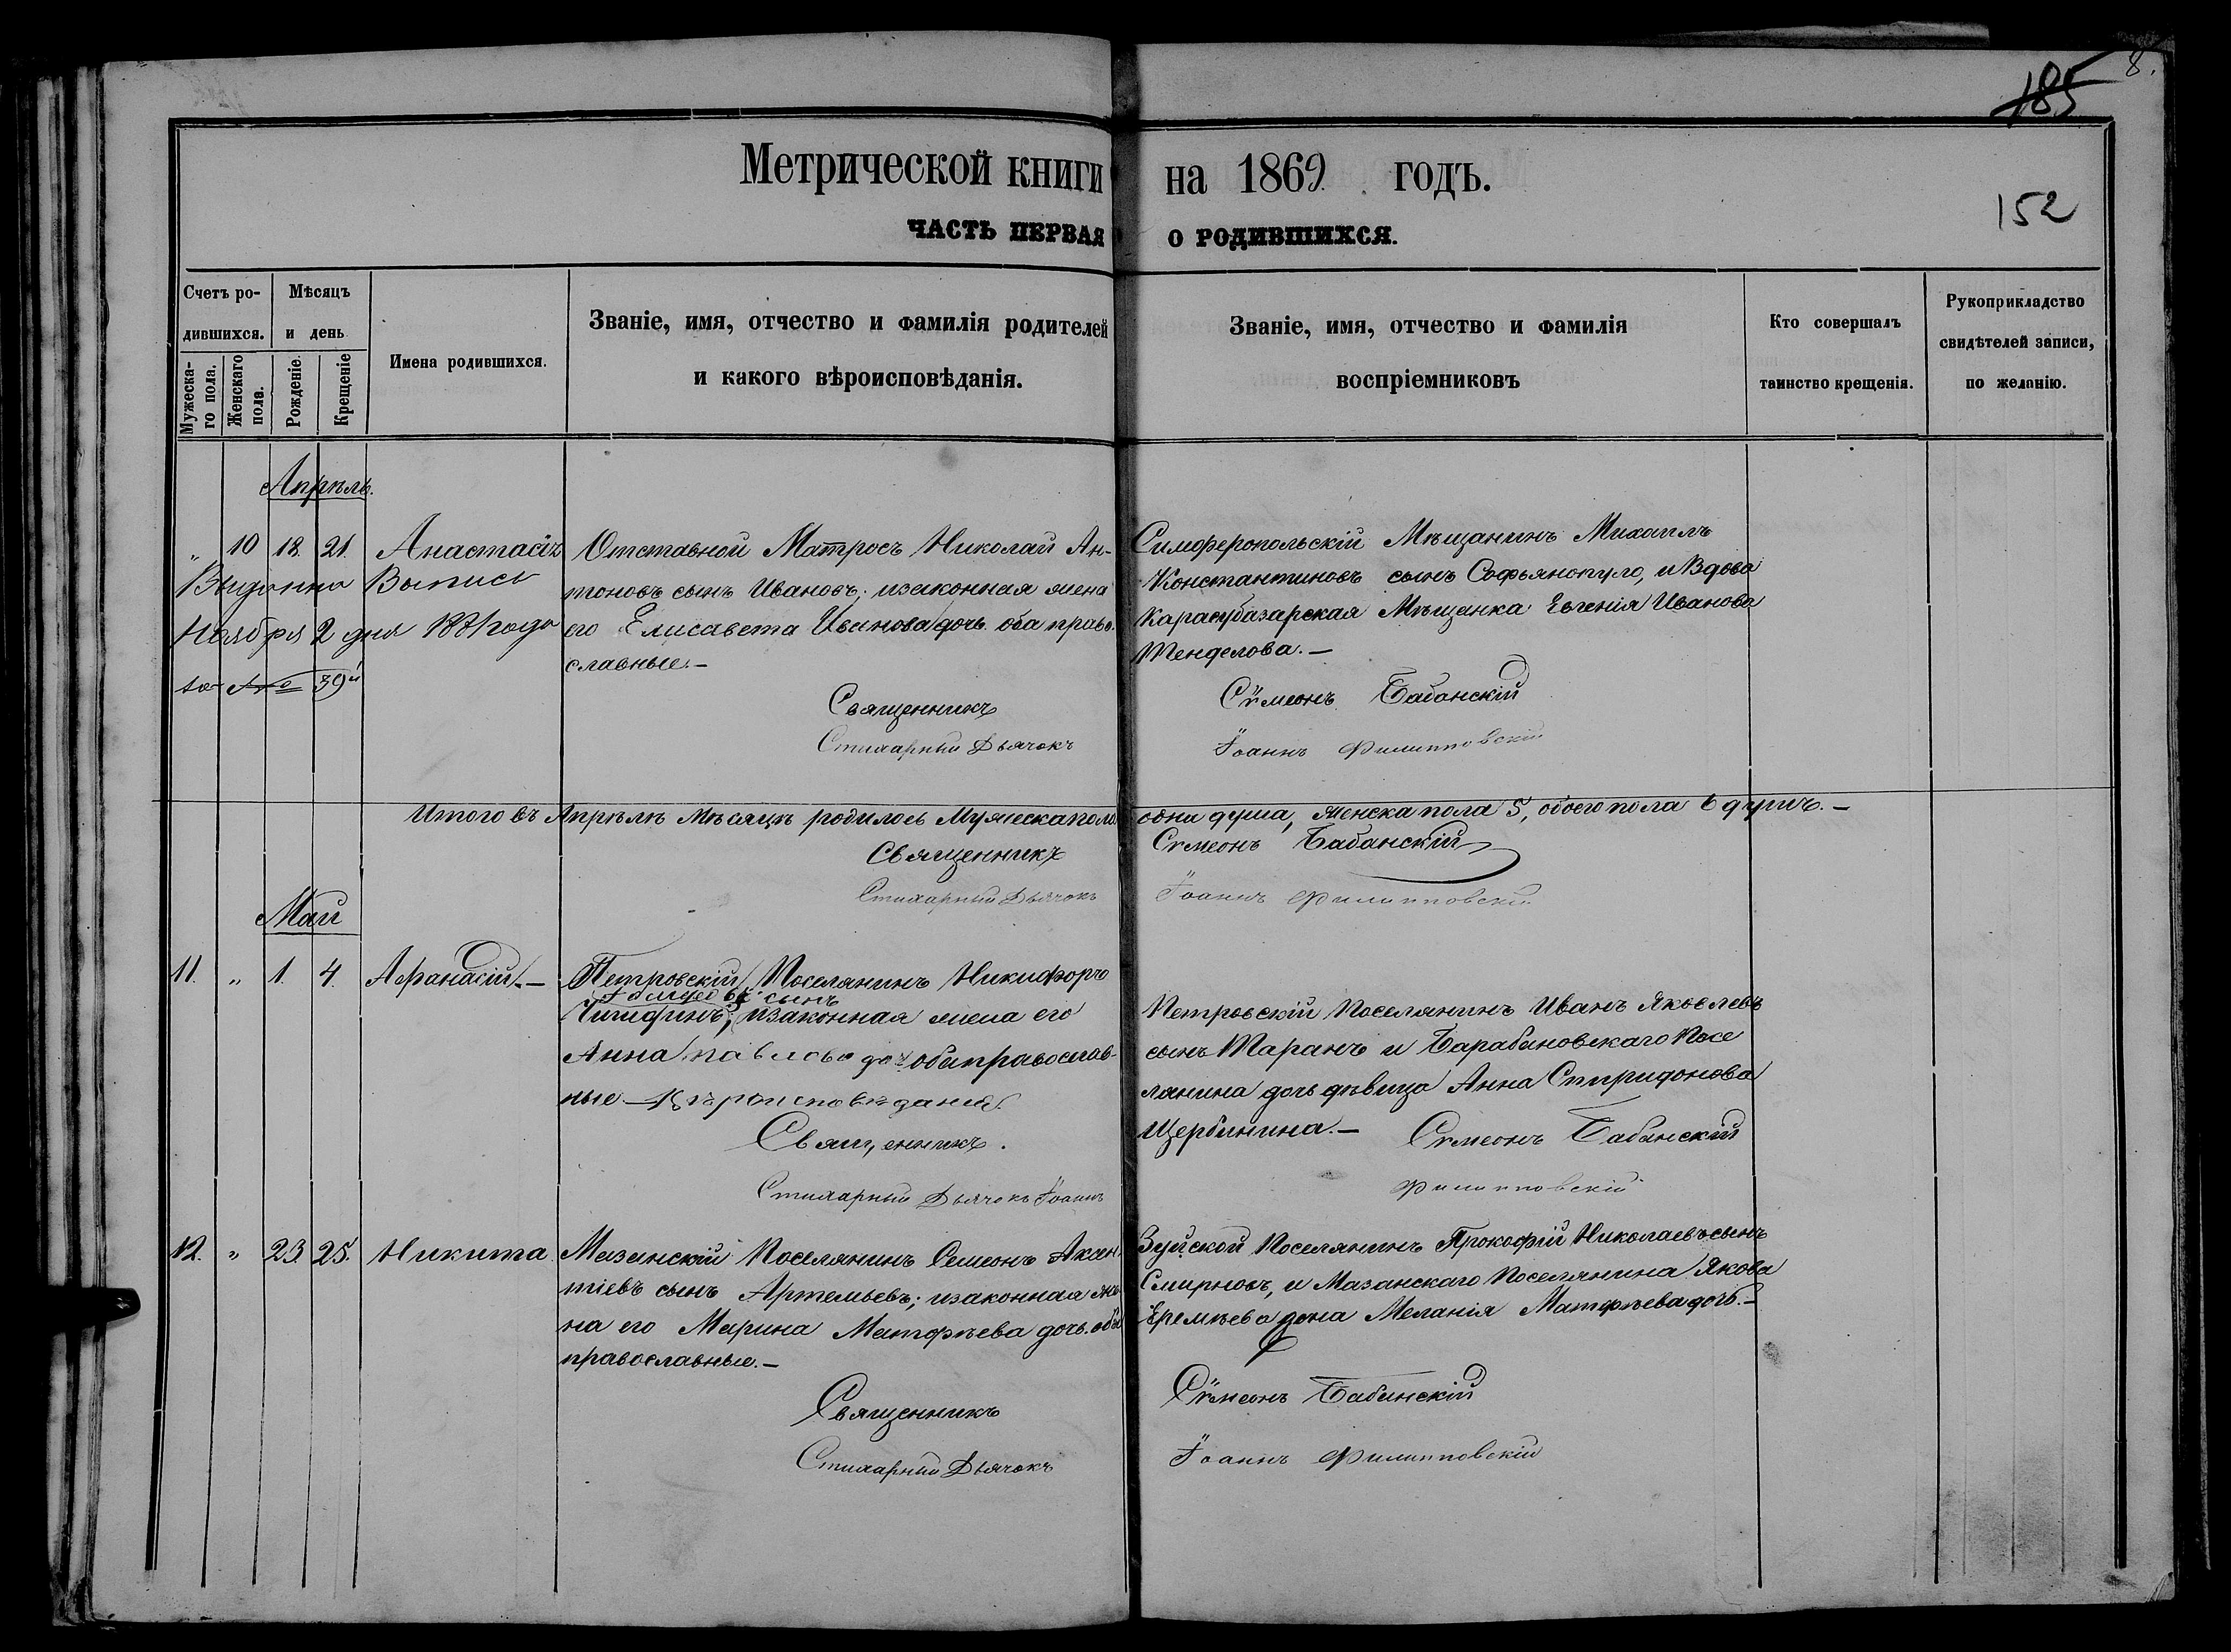 185
8.
Метрической книги на 1869 годъ.
152
ЧАСТЬ ПЕРВАЯ О РОДИВШИХСЯ.
Счетъ ро-
дившихся.
Мужеска-
го пола.
Женскаго
пола.
Мѣсяцъ
и день
Рожденіе.
Крещеніе
Имена родившихся.
Званіе, имя, отчество и фамилія родителей
и какого вѣроисповѣданія.
Званіе, имя, отчество и фамилія
воспріемниковъ
Кто совершалъ
таинство крещенія.
Рукоприкладство
свидѣтелей записи,
по желанію.
Апрѣль.
" 10 18. 21. Анастасія
Выданна Выпись
Ноября 2 дня 1881 года
за № 39й
Отставной Матросъ Николай Ан-
тоновъ сынъ Ивановъ; изаконная жена
его Елисавета Иванова дочь. оба право-
славные.—
Симферопольскій Мѣщанинъ Михаилъ
Константиновъ сынъ Софьянопуло, и Вдова
Карасубазарская Мѣщанка Евгенія Иванова
Менделова.—
Священникъ Сѵмеонъ Бабанскій
Стихарный Дьячокъ Іоаннъ Филипповскій
Итого въ Апрѣлѣ мѣсяцѣ родилось Мужеска пола одна душа, женска пола 5, обоего пола 6 душъ.—
Священникъ Сѵмеонъ Бабанскій
Стихарный Дьячокъ Іоаннъ Филипповскій
Май
11. " 1. 4. Афанасій.—
Петровскій Поселянинъ Никифоръ
сынъ
изаконная жена его
Анна Павлова доч оба православ-
ные Вѣроисповѣданія.
Петровскій Поселянинъ Иванъ Яковлевъ
сынъ Таранъ и Барабановскаго Посе
лянина дочь дѣвица Анна Спиридонова
Щербинина.—
Священникъ. Сѵмеонъ Бабанскій
Стихарный Дьячокъ Іоаннъ Филипповскій
12. " 23. 25. Никита.
Мазанскій Поселянинъ Семеонъ Аксен
тіевъ сынъ Артемьевъ; изаконная же
на его Марина Матфѣева дочь. оба
православные.—
Зуйской Поселянинъ Прокофій Николаевъ сынъ
Смирновъ, и Мазанскаго Поселянина Якова
Еремѣева жена Меланія Матфѣева дочь.—
Священникъ Сѵмеонъ Бабанскій
Стихарный Дьячокъ Іоаннъ Филипповскій